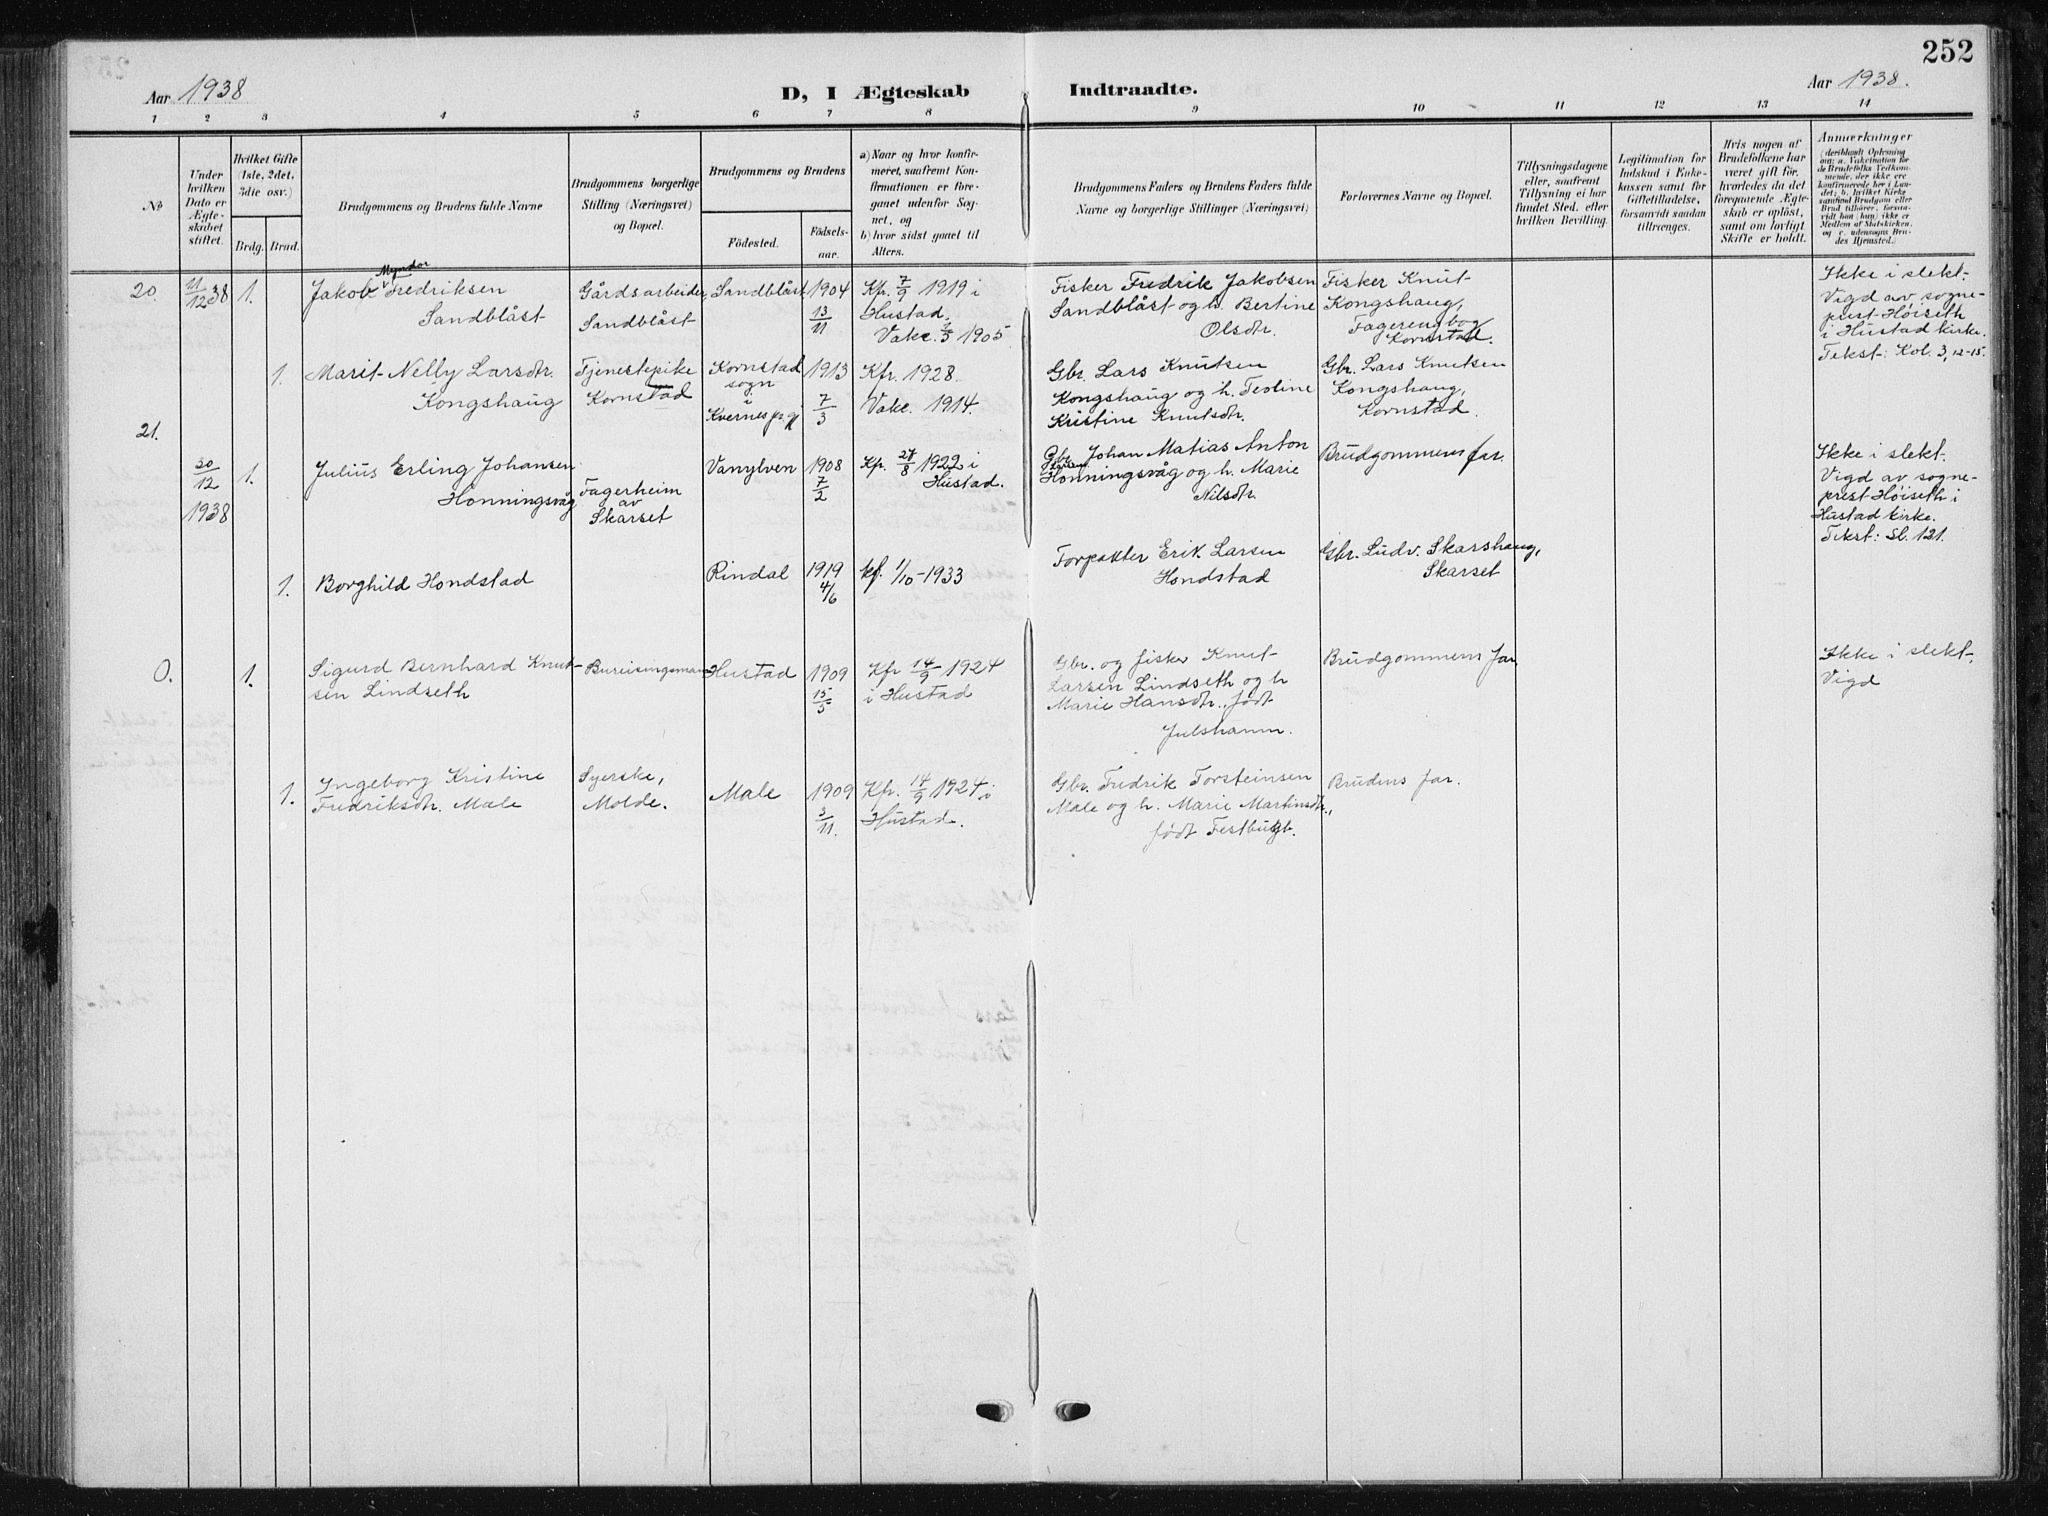 252
Aar 1938
D, I Ægteskab Indtraadte.
Aar 1938.
1 2 3 4 5 6 7 8 9 10 11 12 13 14
No
Under hvilken Dato er Ægteskabet stiftet.
Hvilket Gifte (1ste, 2det, 3die osv.)
Brdg. Brud.
Brudgommens og Brudens fulde Navne
Brudgommens borgerlige Stilling (Næringsvei) og Bopæl.
Brudgommens og Brudens
Fødested. Fødsels-aar.
a) Naar og hvor konfirmeret, saafremt Konfirmationen er foregaaet udenfor Sognet, og
b) hvor sidst gaaet til Alters.
Brudgommens Faders og Brudens Faders fulde
Navne og borgerlige Stillinger (Næringsvei)
Forlovernes Navne og Bopæl.
Tillysningsdagene eller, saafremt Tillysning ei har fundet Sted, efter hvilken Bevilling.
Legitimation for Indskud i Enkekassen samt for Giftetilladelse, forsaavidt saadan tiltrænges.
Hvis nogen af Brudefolkene har været gift før, hvorledes da det foregaaende Ægteskab er opløst, samt om lovligt Skifte er holdt.
Anmærkninger
(deriblandt Oplysning om: a. Vakcination for de Brudefolks Vedkommende, der ikke ere konfirmerede her i Landet; b. hvilket Kirkesamfund Brudgom eller Brud tilhører, forsaavidt han (hun) ikke er Medlem af Statskirken, og c. udensogns Brudes Hjemsted.)
20. 11/12 38 1. Jakob Myndor Fredriksen
Sandblåst
Gårdsarbeider,
Sandblåst
Sandblåst 1904
13/11
Kfr. 7/9 1919 i
Hustad.
Vakc. 1905
Fisker Fredrik Jakobsen
Sandblåst og h. Bertine
Olsdtr.
Fisker Knut
Kongshaug,
Kornstad.
Ikke i slekt.
Vigd av sogne-
prest Høiseth
i Hustad kirke.
Tekst: Kol. 3, 12-15.
1. Marit Nelly Larsdtr.
Kongshaug
Tjenestepike
Kornstad
Kornstad
sogn
i
Kvernes
1913
7/3
Kfr. 1928.
Vakc. 1914.
Gbr. Lars Knutsen
Kongshaug og h. Teoline
Kristine Knutsdtr.
Gbr. Lars Knutsen
Kongshaug,
Kornstad.
21.
30/12
1938
1. Julius Erling Johansen
Honningsvåg
Fagerheim
av
Skarset
Vanylven 1908
7/2
Kfr. 27/8 1922 i
Hustad.
Gbr. Johan Matias Anton
Honningsvåg og h. Marie
Nilsdtr.
Brudgommens far.
Ikke i slekt.
Vigd av sogne-
prest Høiseth i
Hustad kirke.
Tekst: Sl. 121.
1. Borghild Hondstad
Rindal 1919
4/6
kf. 1/10-1933
Forpakter Erik Larsen
Hondstad
Gbr. Ludv. Skarshaug,
Skarset
0. 1. Sigurd Bernhard Knut-
sen Lindseth
Bureisingsmann
Hustad 1909
15/5
Kfr 14/9 1924
i Hustad
Gbr. og fisker Knut
Larsen Lindseth og h
Marie Hansdtr., født
Julshamn.
Brudgommens far
Ikke i slekt,
Vigd
1. Ingeborg Kristine
Fredriksdtr. Male
Syerske,
Molde.
Male 1909
3/11.
Kfr. 14/9 1924 i
Hustad.
Gbr. Fredrik Torsteinsen
Male og h. Marie Martinsdtr.,
født
Brudens far.